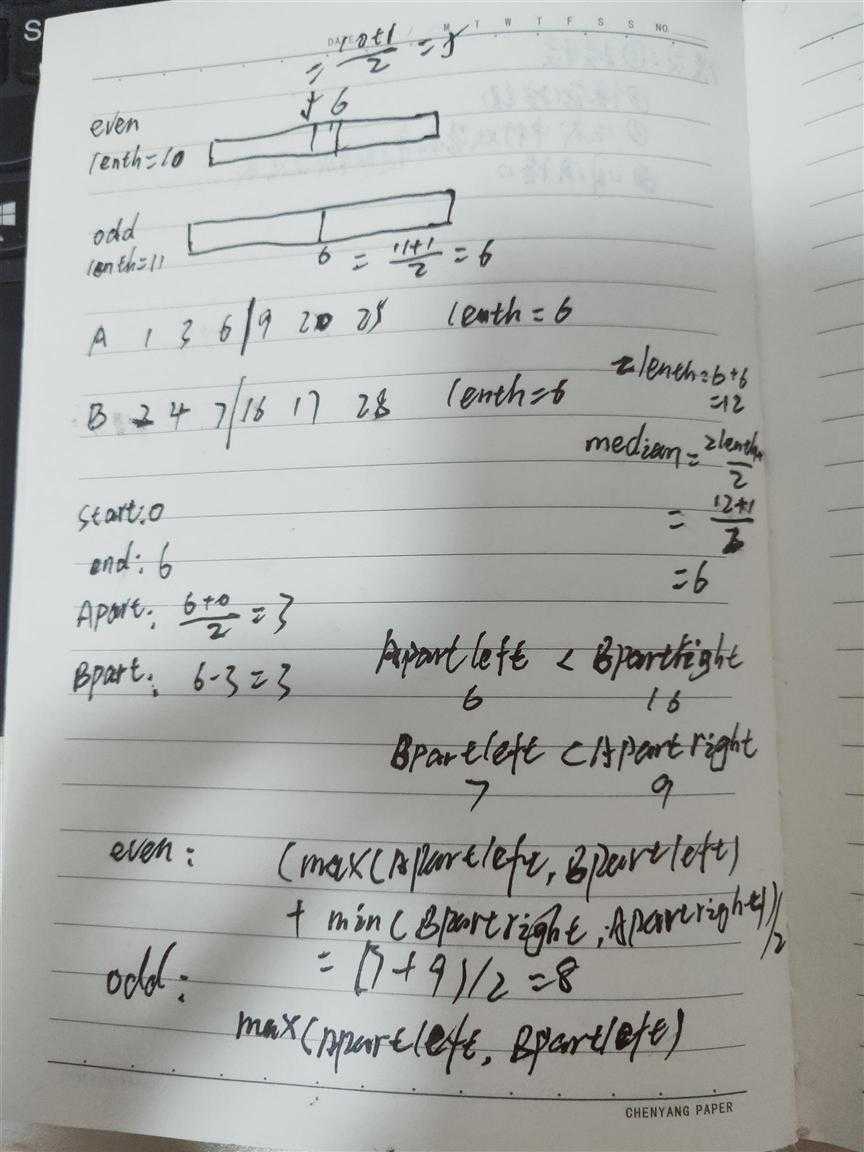 S
DATE M T W T F S S NO.
= 10+1/2 = 5
5 6
even
lenth=10
odd
lenth=11
6 = 11+1/2 = 6
A 1 3 6/9 20 25 lenth=6
B 2 4 7/16 17 28 lenth=6
lenth=6+6
=12
median=
2
= 12+1/2
=6
start:0
end:6
Apart: 6+0/2 = 3
Bpart: 6-3=3
Apartleft < Bpartright
6 16
Bpartleft < Apartright
7 9
even: (max(Apartleft, Bpartleft)
+ min(Bpartright, Apartright))/2
= (7+9)/2=8
odd:
max(Apartleft, Bpartleft)
CHENYANG PAPER